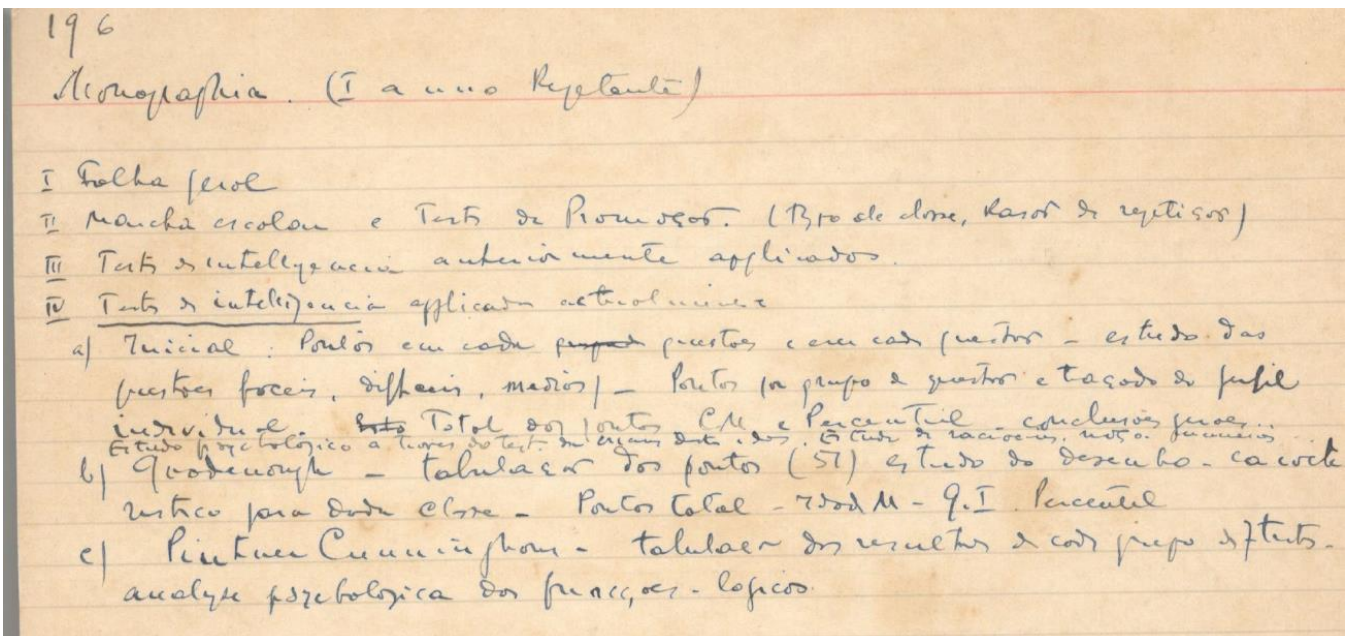 196
Monographia. (I anno Repetente)
I Folha geral
II Marcha escolar e Tests de Promoção. (Typo de classe, Razão de repetição)
III Tests de intelligencia anteriormente applicados.
IV Tests de intelligencia applicados actualmente
a) Inicial: Pontos em cada questões e em cada questão - estudo das
questões faceis, difficeis, medios) - Pontos por grupo de questão e traçado do perfil
individual. Total dos pontos C.M e Percentil - conclusões geraes...
Estudo psychologico a travez do test. da criança desta idade. Estudo de raciocinio, noção numerica
b) Goodenough - tabulação dos pontos (51) estudo do desenho - caracte
ristico para dada classe - Pontos total - Idad M - Q.I. Percentil
c) Pintner Cunningham - tabulação dos resultados de cada grupo de 7 tests -
analyse psychologica das funcções - logicas